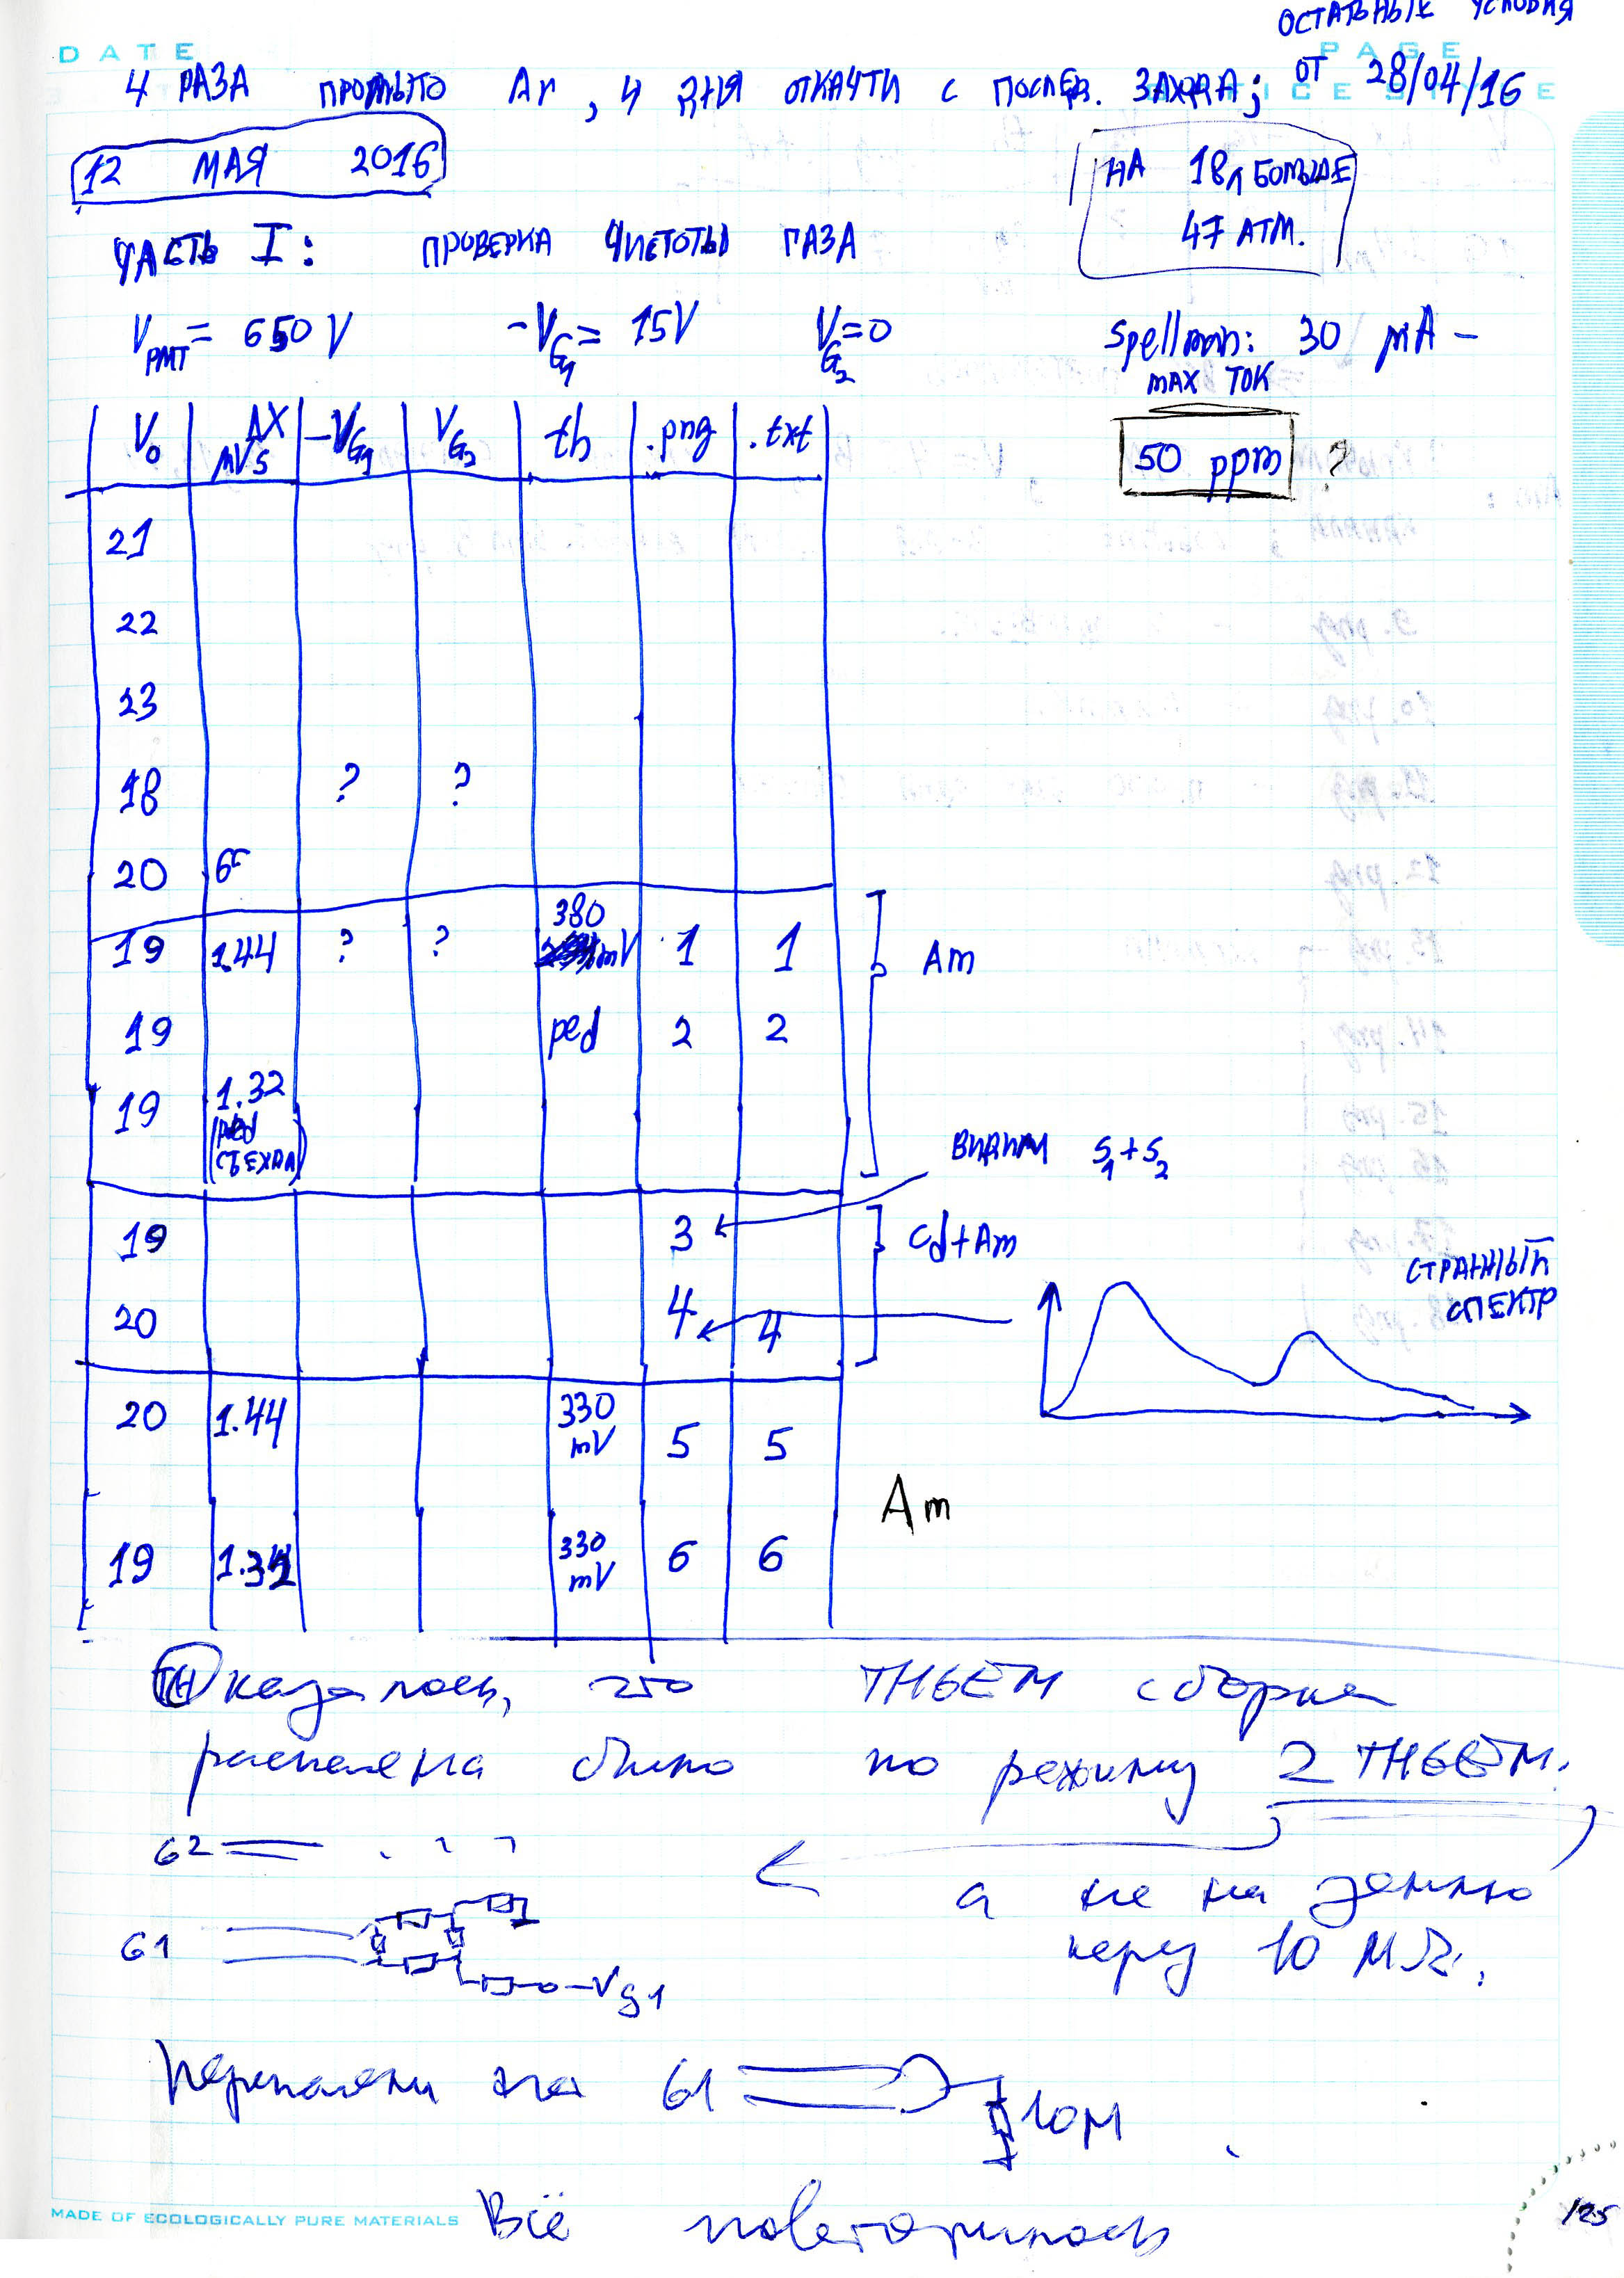 ОСТАЛЬНЫЕ УСЛОВИЯ
DATE PAGE
4 РАЗА ПРОМЫТО Ar, 4 ДНЯ ОТКАЧКИ С ПОСЛЕД. ЗАХОДА; ОТ 28/04/16
12 МАЯ 2016
НА 18л БОЛЬШЕ
47 АТМ.
ЧАСТЬ I: ПРОВЕРКА ЧИСТОТЫ ГАЗА
V_PMT = 650 V -V_G1 = 15V V_G2 = 0
Spellman: 30 мA -
MAX ТОК
50 ppm ?
V_0 ΔX mVs -V_G1 V_G2 th .png .txt
21
22
23
18 ? ?
20
19 1.44 ? ? 380 mV 1 1
Am
19 ped 2 2
19 1.32 (ped СЪЕХАЛ)
ВИДИМ S1+S2
19 3
Cd+Am
20 4 4
СТРАННЫЙ
СПЕКТР
20 1.44 330 mV 5 5
Am
19 330 mV 6 6
Оказалось, что THGEM сборка
распаяна была по режиму 2 THGEM.
G2
а не на землю
G1
через 10 МΩ.
-Vg1
Перепаяли на G1
10M
Всё повторилось
MADE OF ECOLOGICALLY PURE MATERIALS
125